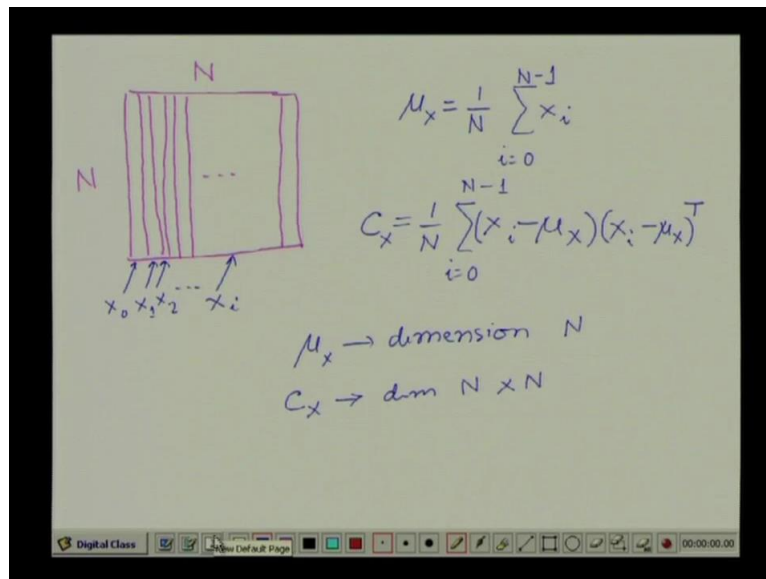 N
N
x₀ x₁ x₂ ... xᵢ
...
μₓ = 1/N ∑_{i=0}^{N-1} xᵢ
Cₓ = 1/N ∑_{i=0}^{N-1} (xᵢ - μₓ)(xᵢ - μₓ)ᵀ
μₓ → dimension N
Cₓ → dim N × N
Digital Class
New Default Page
00:00:00.00